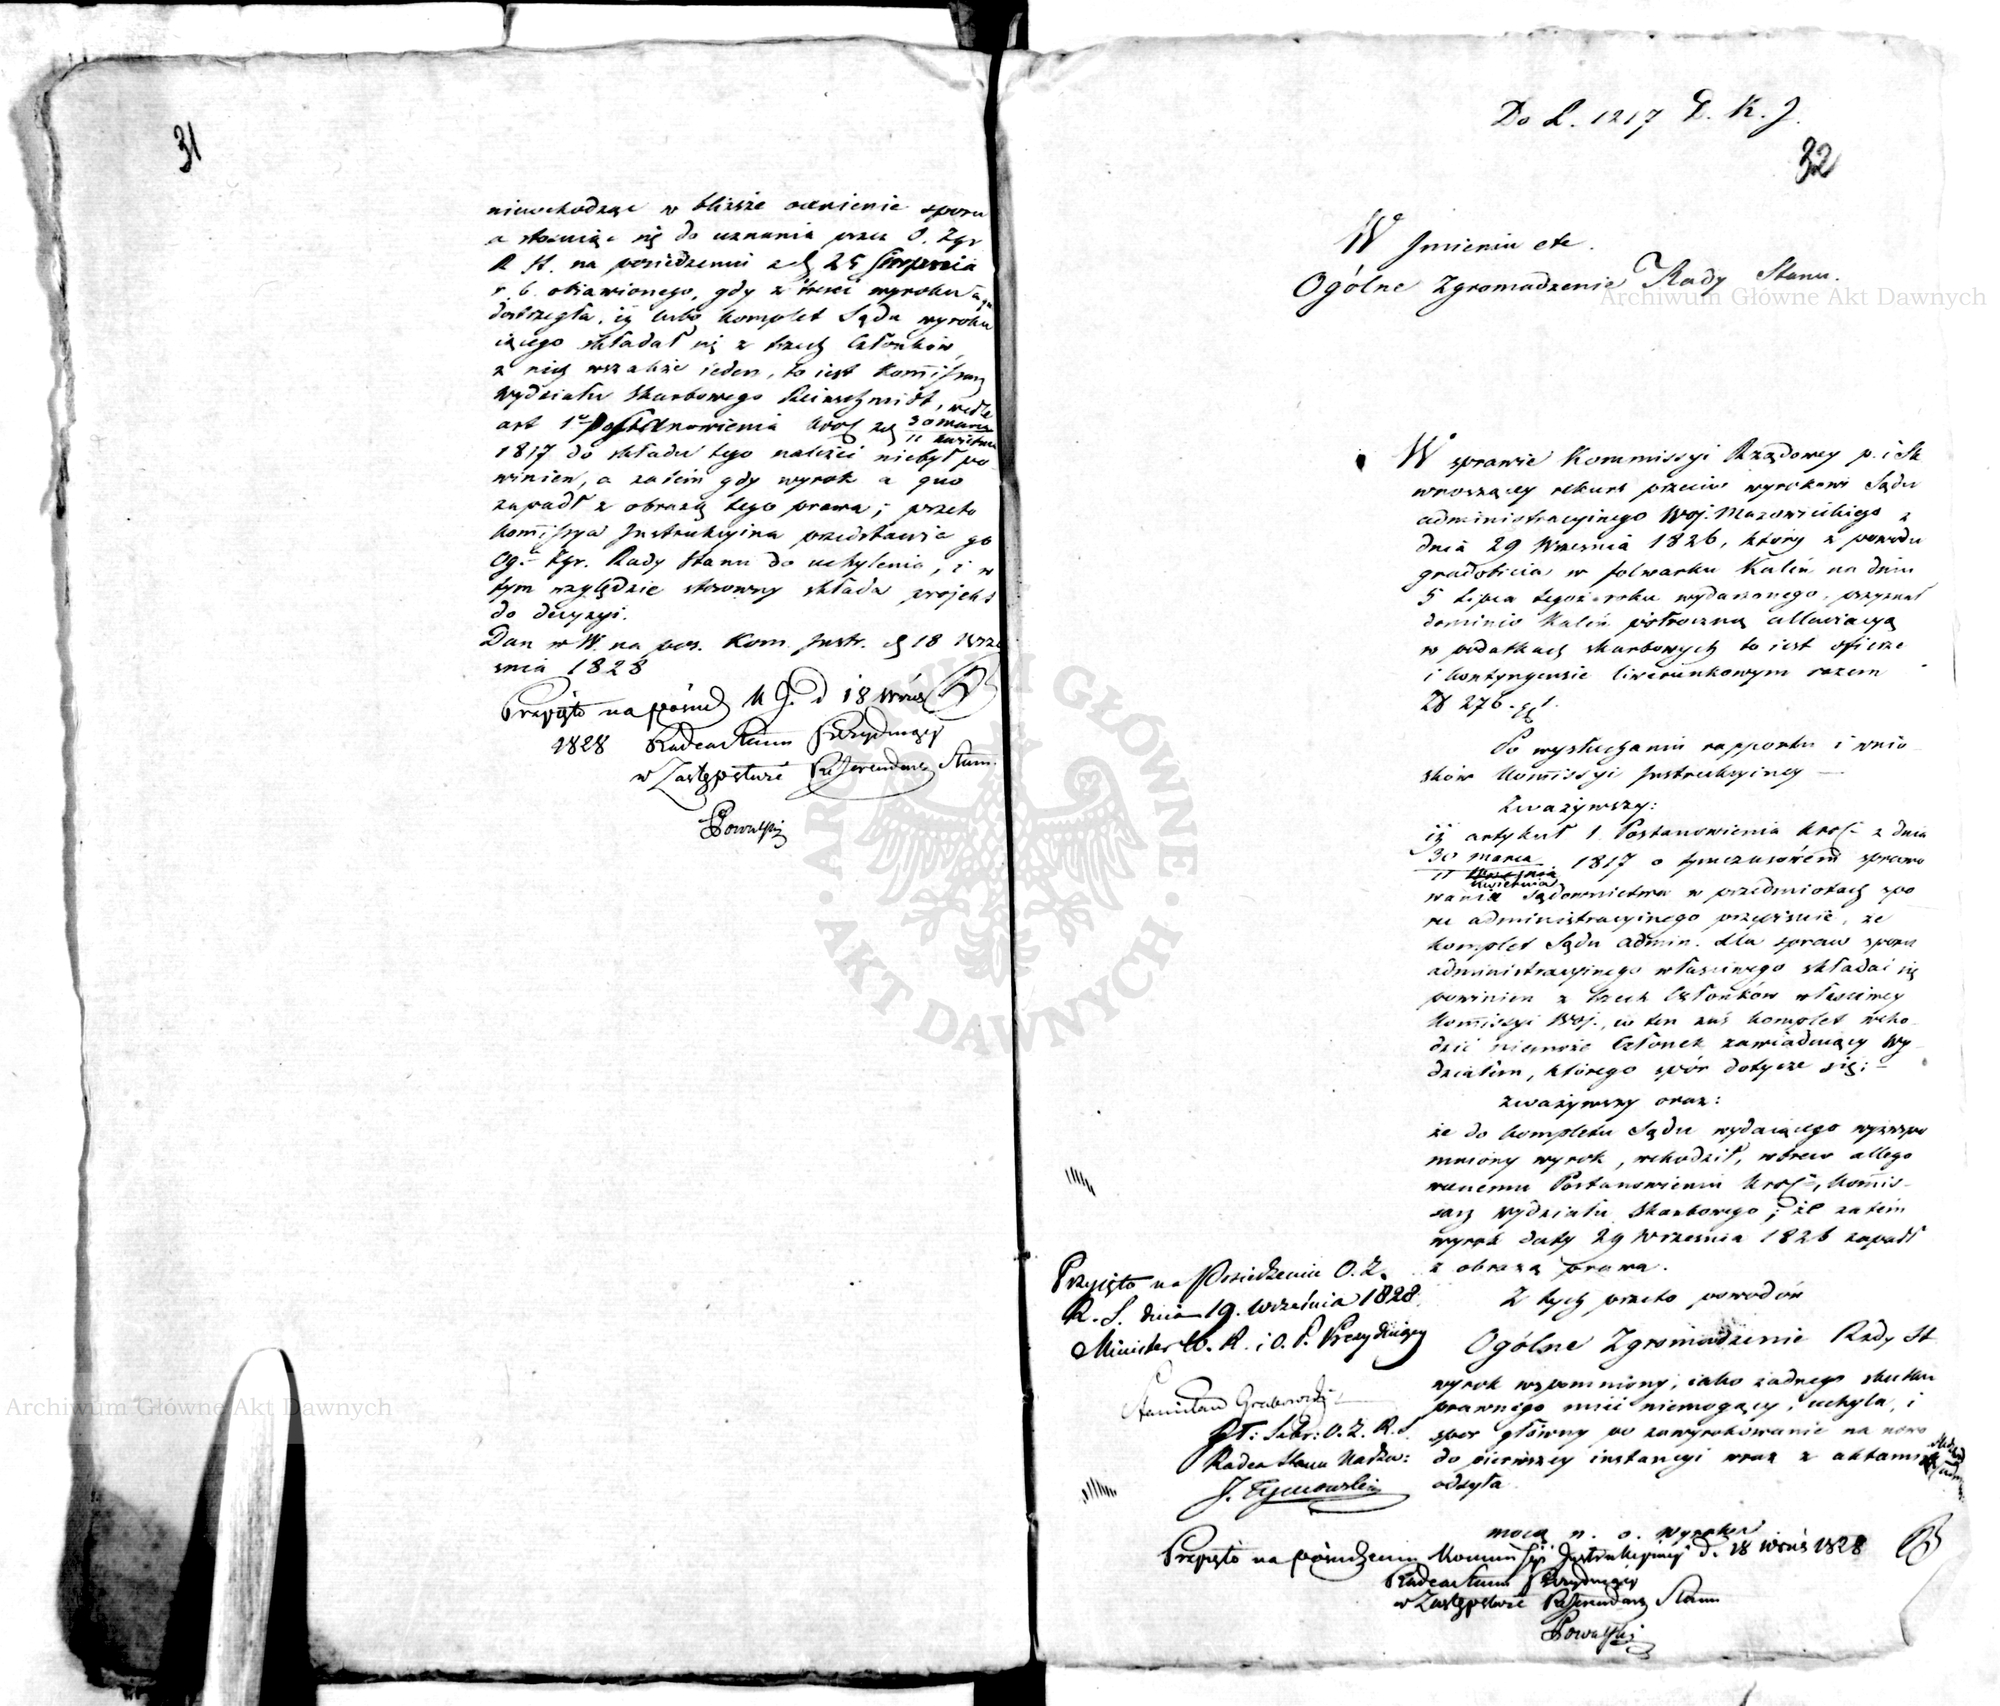 31
niewchodząc w bliższe ocenienie sporu
a stosuiąc się do uznania przez O. Zgr
R St. na posiedzeniu z d 25 Sierpnia
r. b. obiawionego, gdy z treści wyroku a quo
dostrzegła, iż lubo komplet Sądu wyroku
iącego składał się z trzech Członków,
z nich wszakże ieden, to iest Kommissarz
wydziału Skarbowego, wedle
art 1o Postanowienia Król z d 30 marca
11 kwietnia
1817 do składu tego należeć niebył po-
winien, a zatém gdy wyrok a quo
zapadł z obrazą tego prawa; przeto
Kommissya Instrukcyina przedstawia go
Og.e Zgr. Rady Stanu do uchylenia, i w
tym względzie stosowny składa projekt
do decyzyi.
Dan w W. na pos. Kom. Instr. d 18 Wrze
śnia 1828
Przyięto na posiedz K J. d 18 Wrześ
1828 Radca Stanu Prezyduiący
w Zastępstwie Referendarz Stanu
Do L. 1217 D. K. J.
32
W Jmieniu etc.
Ogólne Zgromadzenie Rady Stanu.
W sprawie Kommissyi Rządowey p. i Sk
wnoszącey rekurs przeciw wyrokowi Sądu
administracyinego Woj. Mazowieckiego z
dnia 29 Września 1826, który z powodu
gradobicia w folwarku Kaleń na dniu
5 Lipca tegoż roku wydarzonego, przyznał
dominio Kaleń półroczną allewiacyą
w podatkach skarbowych to iest ofierze
i kontyngensie liwerunkowym razem
Zł 276.
Po wysłuchaniu rapportu i wnio-
sków Kommissyi Instrukcyiney —
Zważywszy:
iż artykuł 1 Postanowienia Król z dnia
30 marca
11 kwietnia 1817 o tymczasowém sprawo
waniu Sądownictwa w przedmiotach spo
ru administracyinego przepisuie, że
komplet Sądu admin. dla spraw sporu
administracyinego właściwego składać się
powinien z trzech Członków właściwey
Kommissyi Woj., w ten zaś komplet wcho-
dzić niemoże Członek zawiaduiący Wy-
działem, którego spór dotycze się;
zważywszy oraz:
że do kompletu Sądu wydaiącego wyżwspo
mniony wyrok, wchodził, wbrew allego
wanemu Postanowieniu Król, Kommis-
sarz wydziału Skarbowego; że zatém
wyrok daty 29 Września 1826 zapadł
z obrazą prawa.
Z tych przeto powodów
Ogólne Zgromadzenie Rady St
wyrok wspomniony, iako żadnego skutku
prawnego mieć niemogący, uchyla, i
spór główny po zawyrokowanie na nowo
do pierwszey instancyi wraz z aktami
odsyła.
mocą n. o. wyroku
Przyięto na Posiedzeniu O. Z.
R. S. dnia 19. września 1828.
Minister W. R. i O. P. Prezyduiący
Stanisław Grabowski
Radca Stanu Nadzw:
J. Tymowski
Przyięto na posiedzeniu Kommissyi Instrukcyiney d. 18 Wrześ 1828
Radca Stanu Prezyduiący
w Zastępstwie Referendarz Stanu
Archiwum Główne Akt Dawnych
Archiwum Główne Akt Dawnych
ARCHIWUM GŁÓWNE · AKT DAWNYCH ·